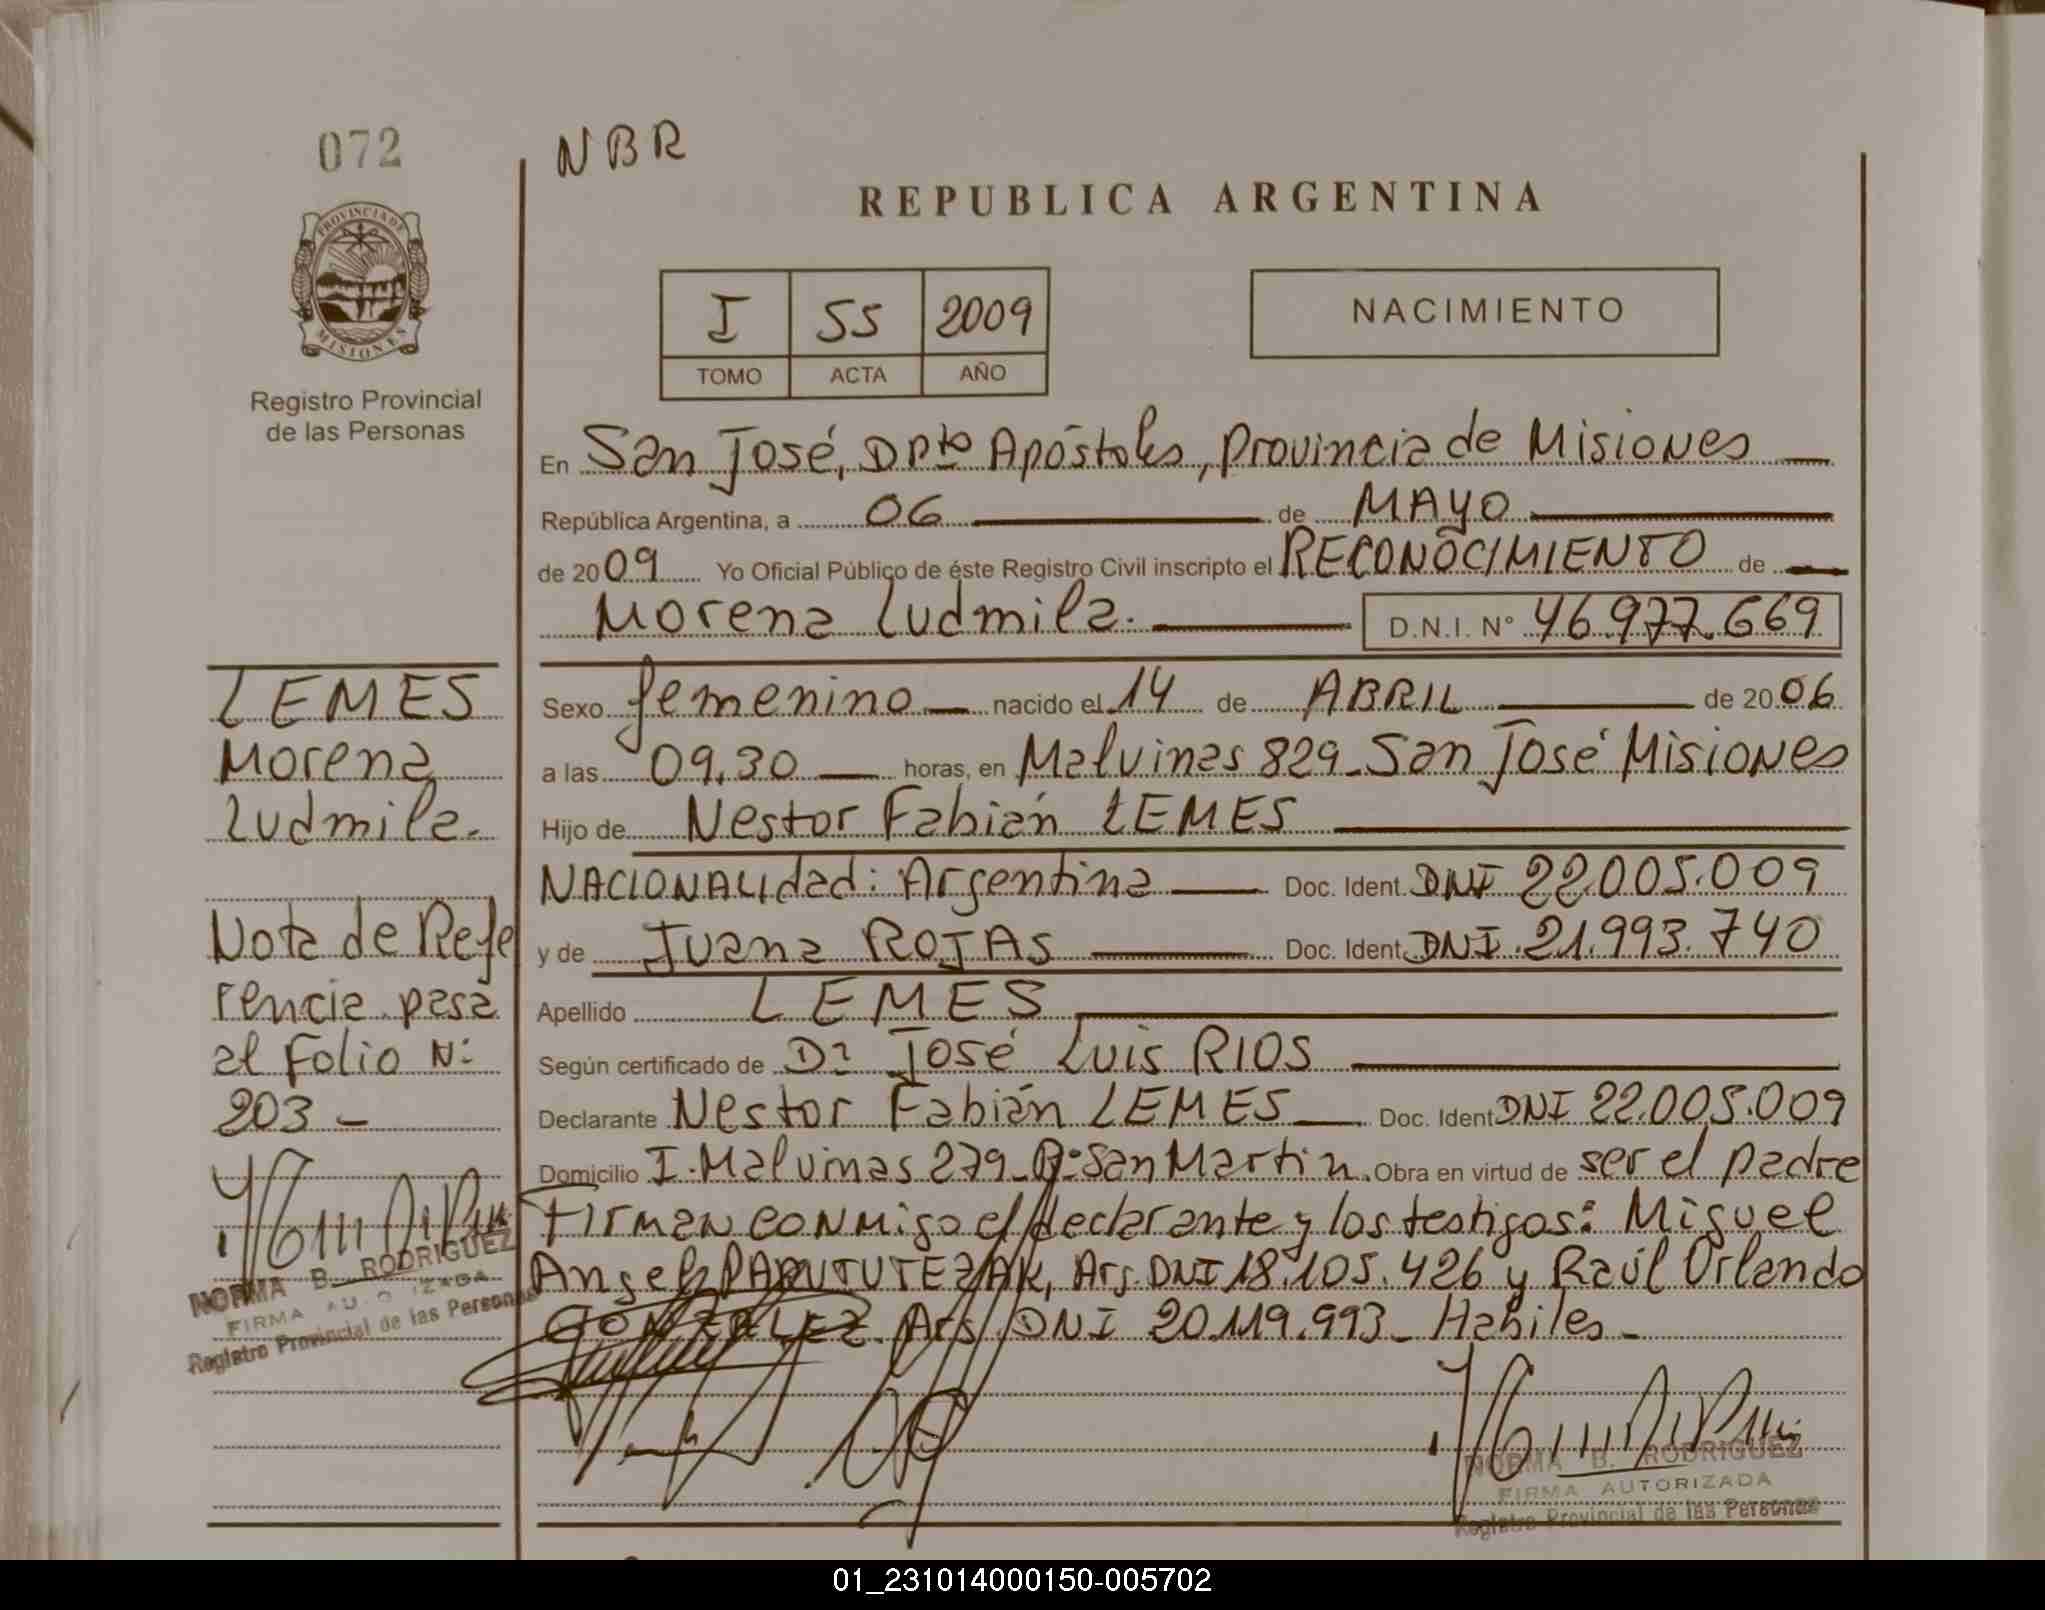 072
NBR
REPUBLICA ARGENTINA
PROVINCIA DE
MISIONES
Registro Provincial
de las Personas
I 55 2009
TOMO ACTA AÑO
NACIMIENTO
En San José, Dpto Apóstoles, Provincia de Misiones
República Argentina, a 06 de MAYO
de 2009 Yo Oficial Público de éste Registro Civil inscripto el RECONOCIMIENTO de
Morena Ludmila. D.N.I. N° 46.977.669
Sexo femenino nacido el 14 de ABRIL de 2006
a las 09.30 horas, en Malvinas 829 - San José Misiones
Hijo de Nestor Fabián LEMES
NACIONALIdad: Argentina Doc. Ident. DNI 22.005.009
y de Juana ROJAS Doc. Ident. DNI. 21.993.740
Apellido LEMES
Según certificado de Dr José Luis RIOS
Declarante Nestor Fabián LEMES Doc. Ident DNI 22.005.009
Domicilio I. Malvinas 279 - B° San Martin. Obra en virtud de ser el padre
Firman conmigo el declarante y los testigos: Miguel
Angel Arg. DNI 18.105.426 y Raúl Orlando
GONZALEZ Arg. DNI 20.119.993 - Habiles -
LEMES
Morena
Ludmila.
Nota de Refe
rencia pasa
al Folio N:
203 -
NORMA B. RODRIGUEZ
FIRMA AUTORIZADA
Registro Provincial de las Personas
NORMA B. RODRIGUEZ
FIRMA AUTORIZADA
Registro Provincial de las Personas
01_231014000150-005702